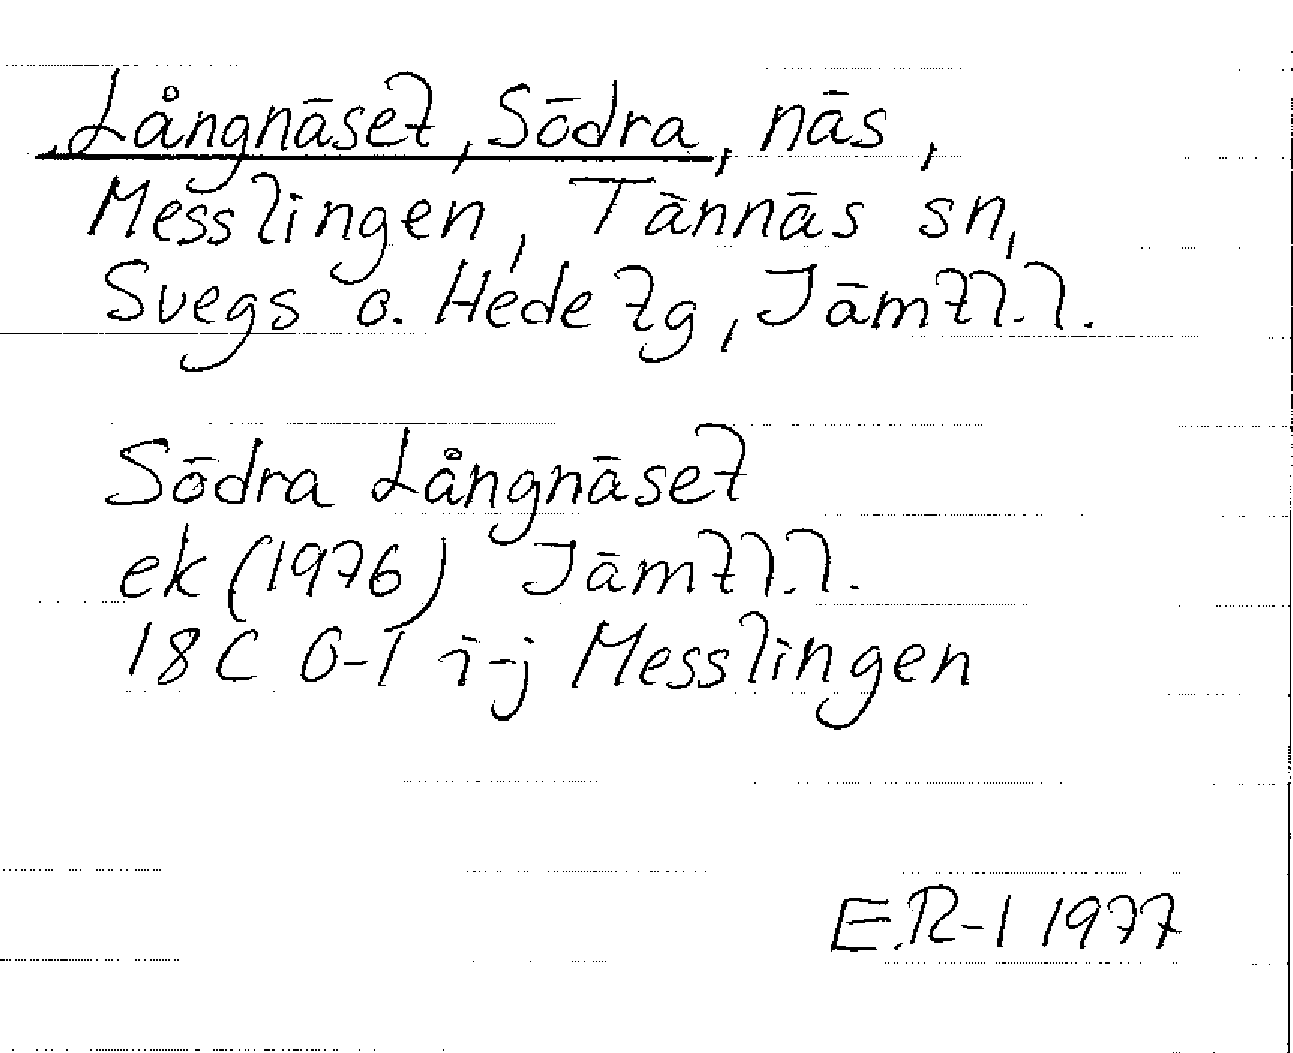 Långnäset, Södra, näs,
Messlingen, Tännäs sn,
Svegs o. Hede tg, Jämtl. l.
Södra Långnäset
ek (1976) Jämtl. l.
18C 0-1 i-j Messlingen
E.R-l 1977